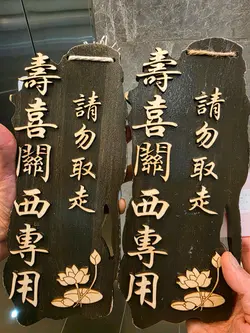 請勿取走
壽喜關西專用
請勿取走
壽喜關西專用